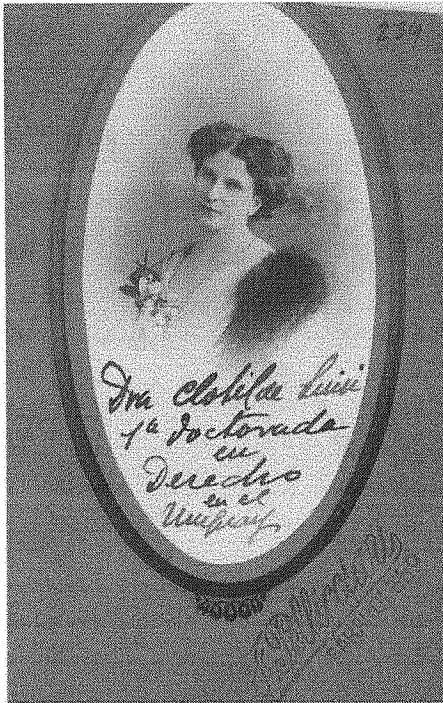 239
Dra Clotilde Luisi
1ª doctorada
en
Derecho
en el
Uruguay